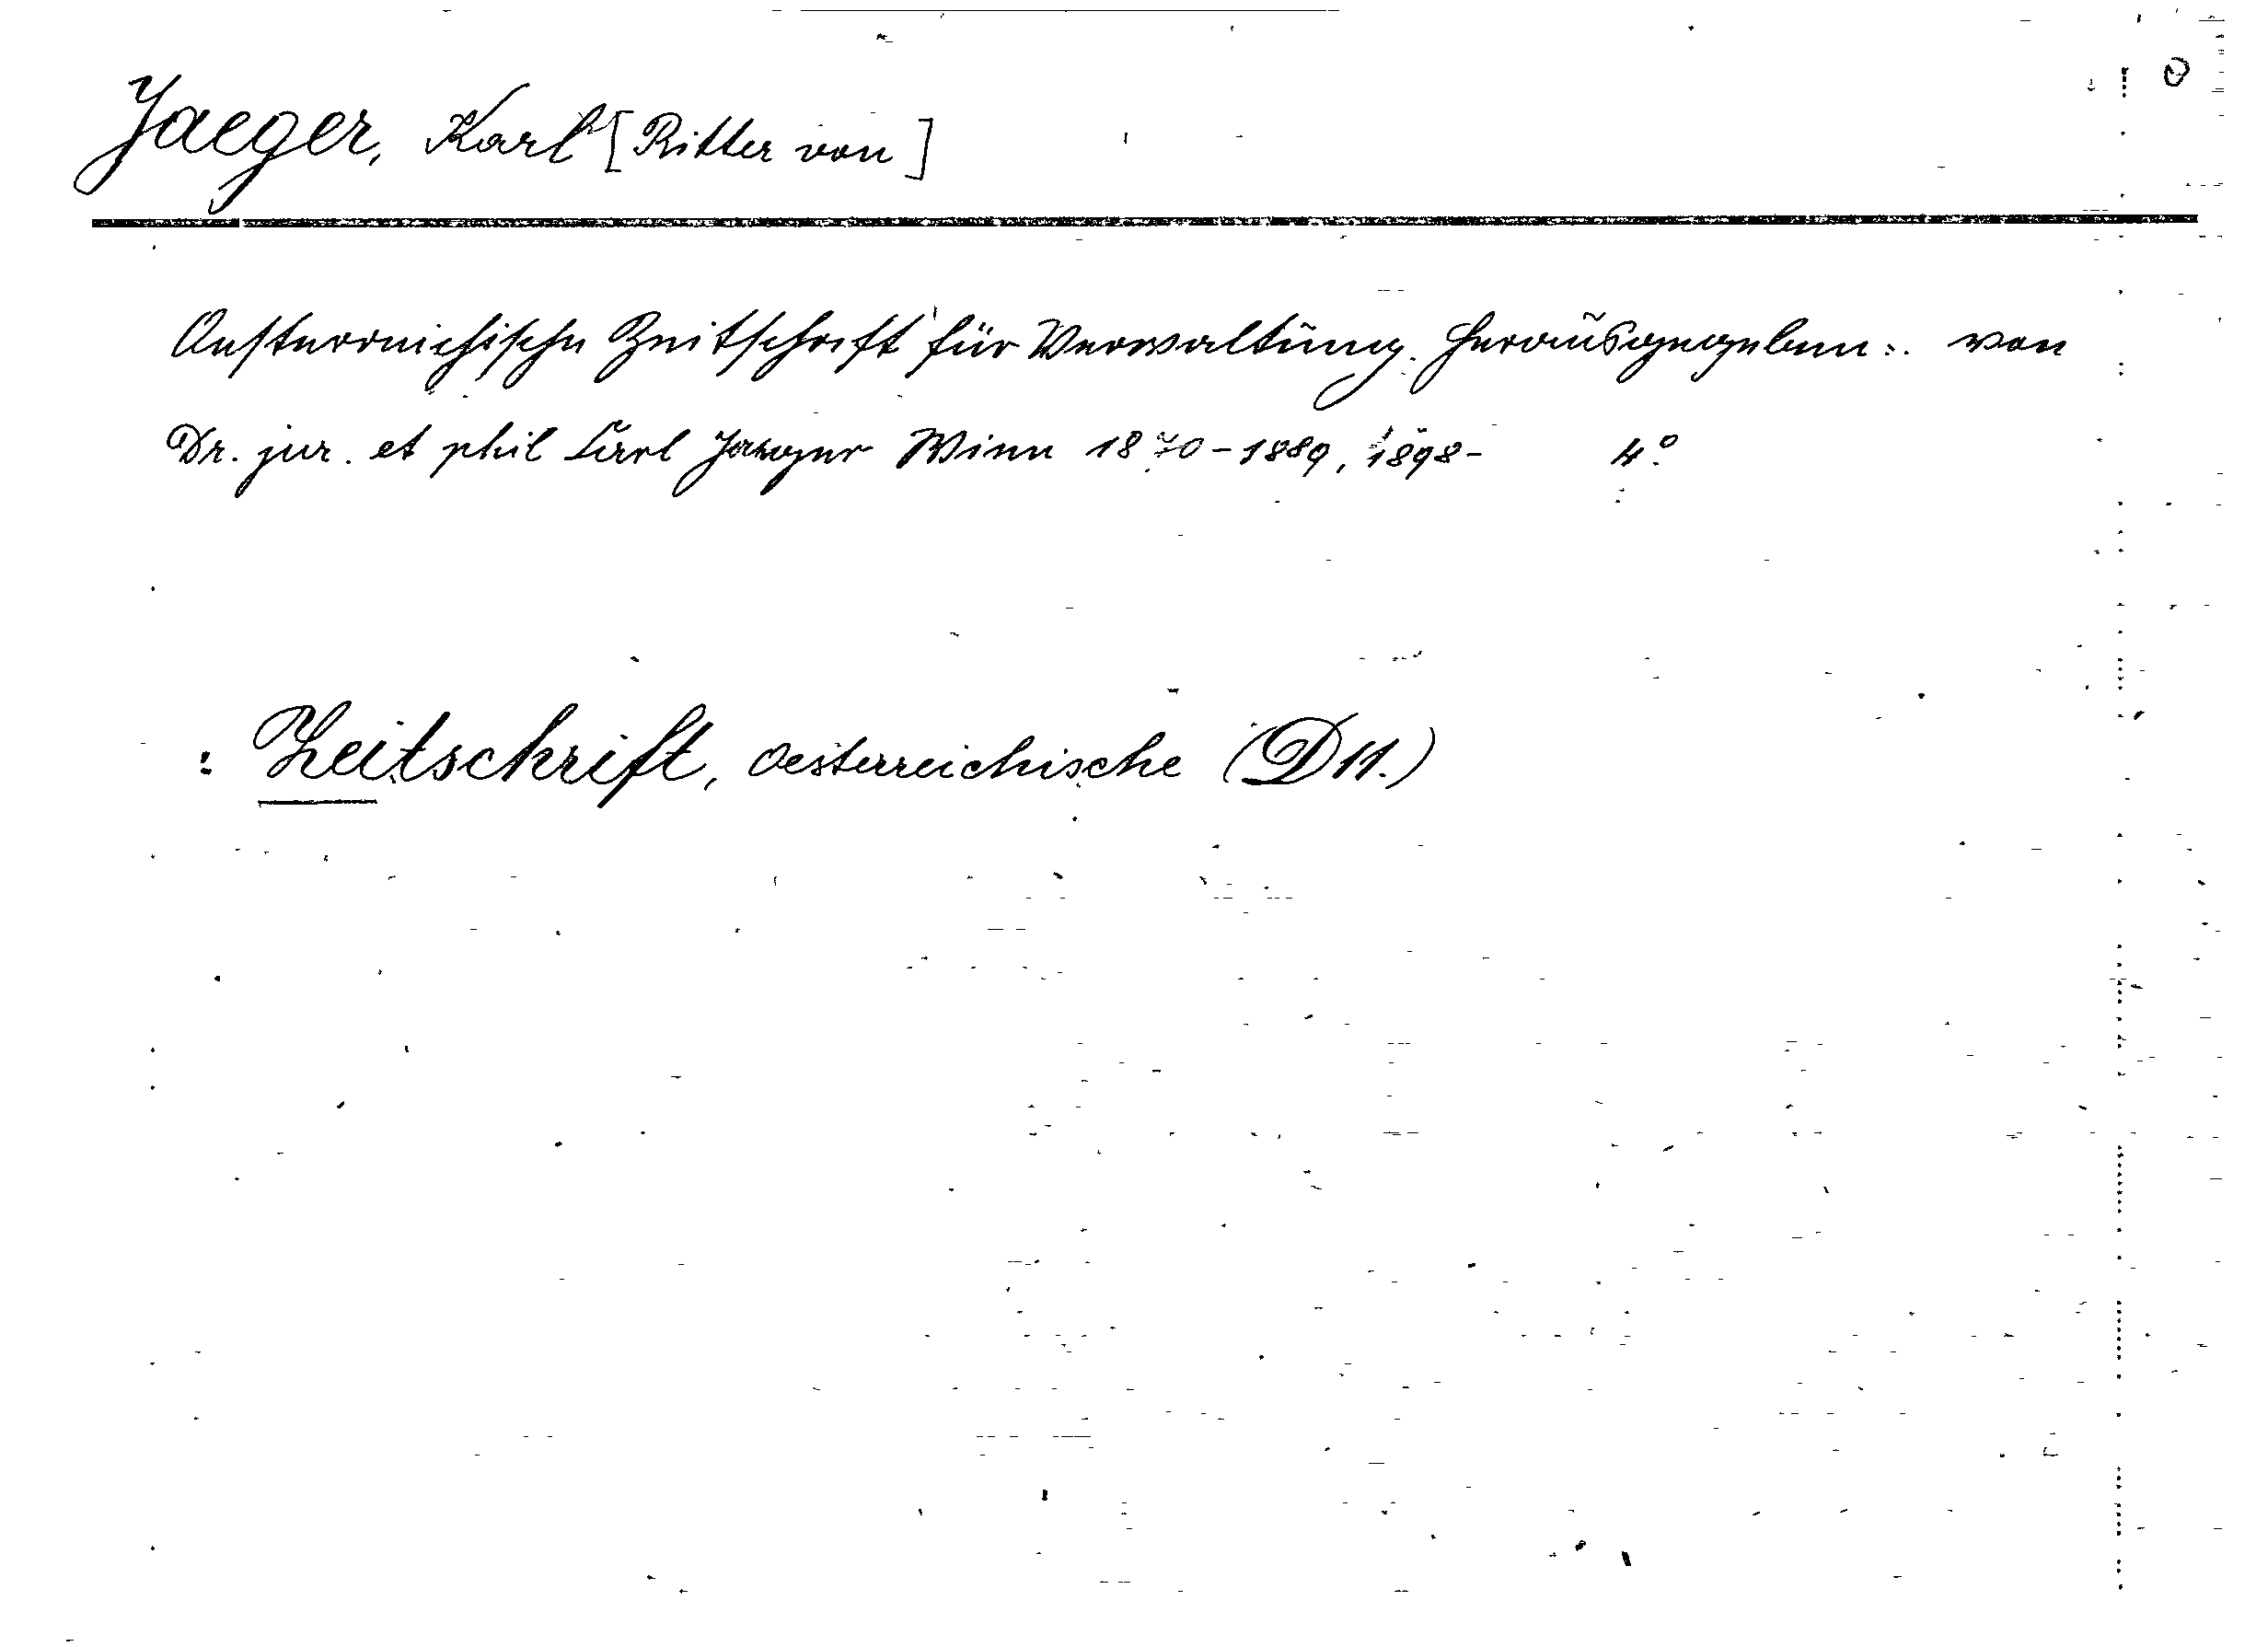 Jaeger, Karl [Ritter von]
Oesterreichische Zeitschrift für Verwaltung. Herausgegeben :. von
Dr. jur. et phil Carl Jaeger Wien 1870-1889, 1898- 4°
: Zeitschrift, oesterreichische (D11.)